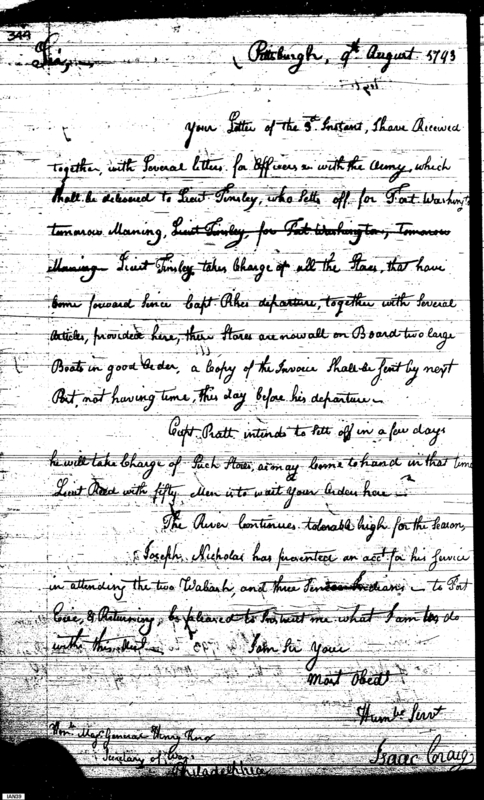 344
Sir, Pittsburgh, 9th August 1793
Your Letter of the 3d Instant, I have Received
together, with Several letters for Officers with the Army, which
Shall be delivered to Lieut Tinsley, who Setts off for Fort Washington
tomorow Morning, Lieut Tinsley, for Fort Washington, Tomorow
Morning Lieut Tinsley takes Charge of all the Stores, that have
Come forward Since Capt. Pikes departure, together with Several
Articles, provided here, these Stores are now all on Board two large
Boats in good Order, a Copy of the Invoice Shall be Sent by next
Post, not having time, this day before his departure
Capt. Pratt intends to Sett off in a few days
he will take Charge of Such Stores, as may Come to hand in that time
Lieut Read with fifty Men is to wait Your Orders here
The River Continues tolerable high for the Season,
Joseph Nicholas has presented an acct. for his Service
in attending the two Wabash, and three Indians to Fort
&Returning, be pleased to Instruct me what I am to do
with this
I am Sir Your
Most Obedt
Humble Servt
Isaac Craig
Honble. Majr General Henry Knox
Secretary of War
Philadelphia
IAN39